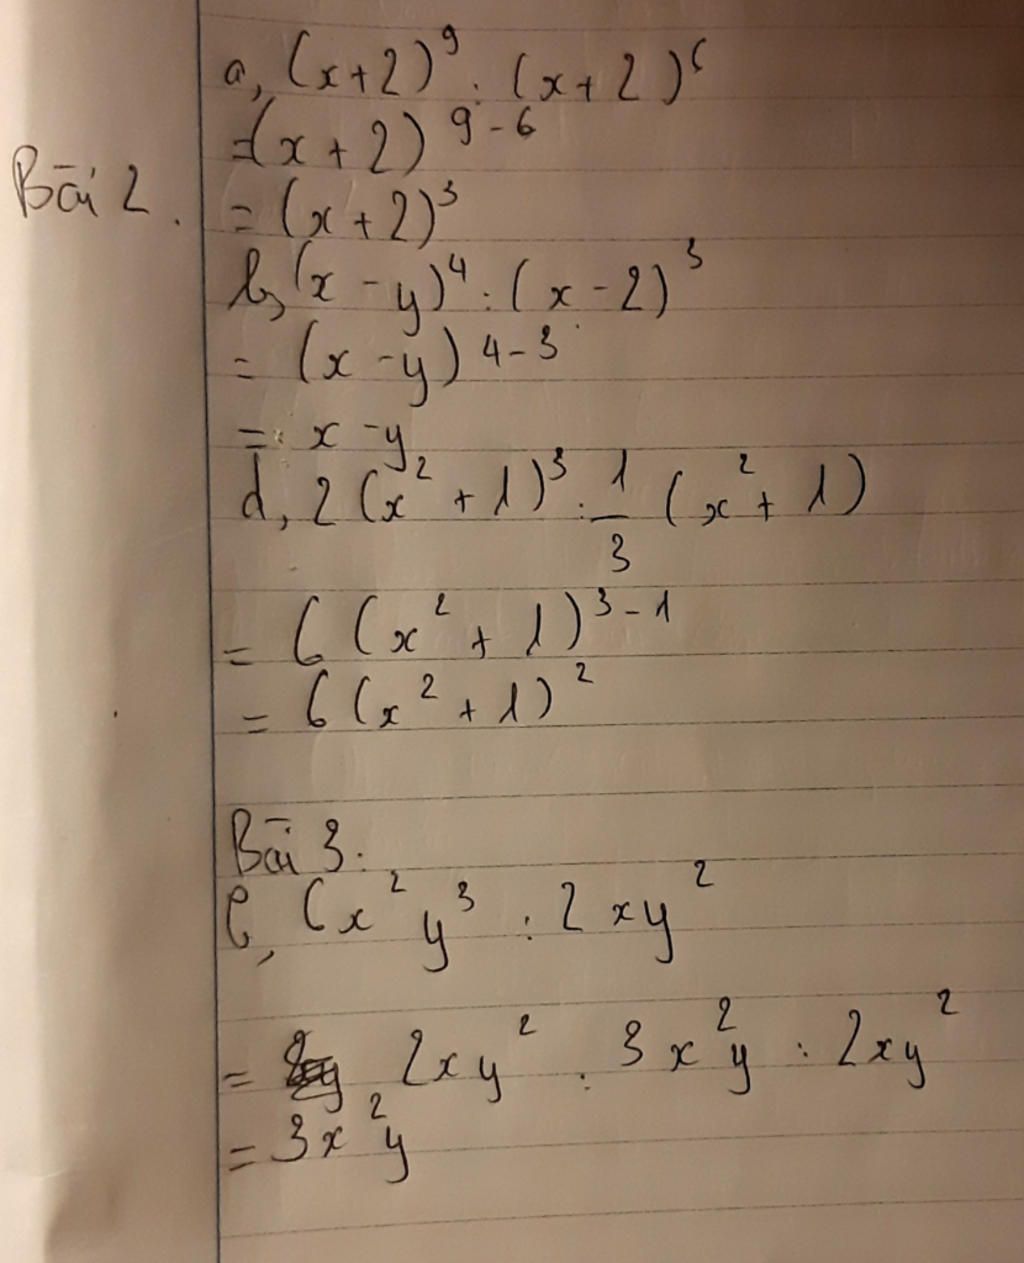 Bài 2.
a, (x+2)⁹ : (x+2)⁶
= (x+2)⁹⁻⁶
= (x+2)³
b, (x-y)⁴ : (x-2)³
= (x-y)⁴⁻³
= x-y
d, 2(x²+1)³ : 1/3 (x²+1)
= 6(x²+1)³⁻¹
= 6(x²+1)²
Bài 3:
e, 6x²y³ : 2xy²
= 2xy² . 3x²y : 2xy²
= 3x²y